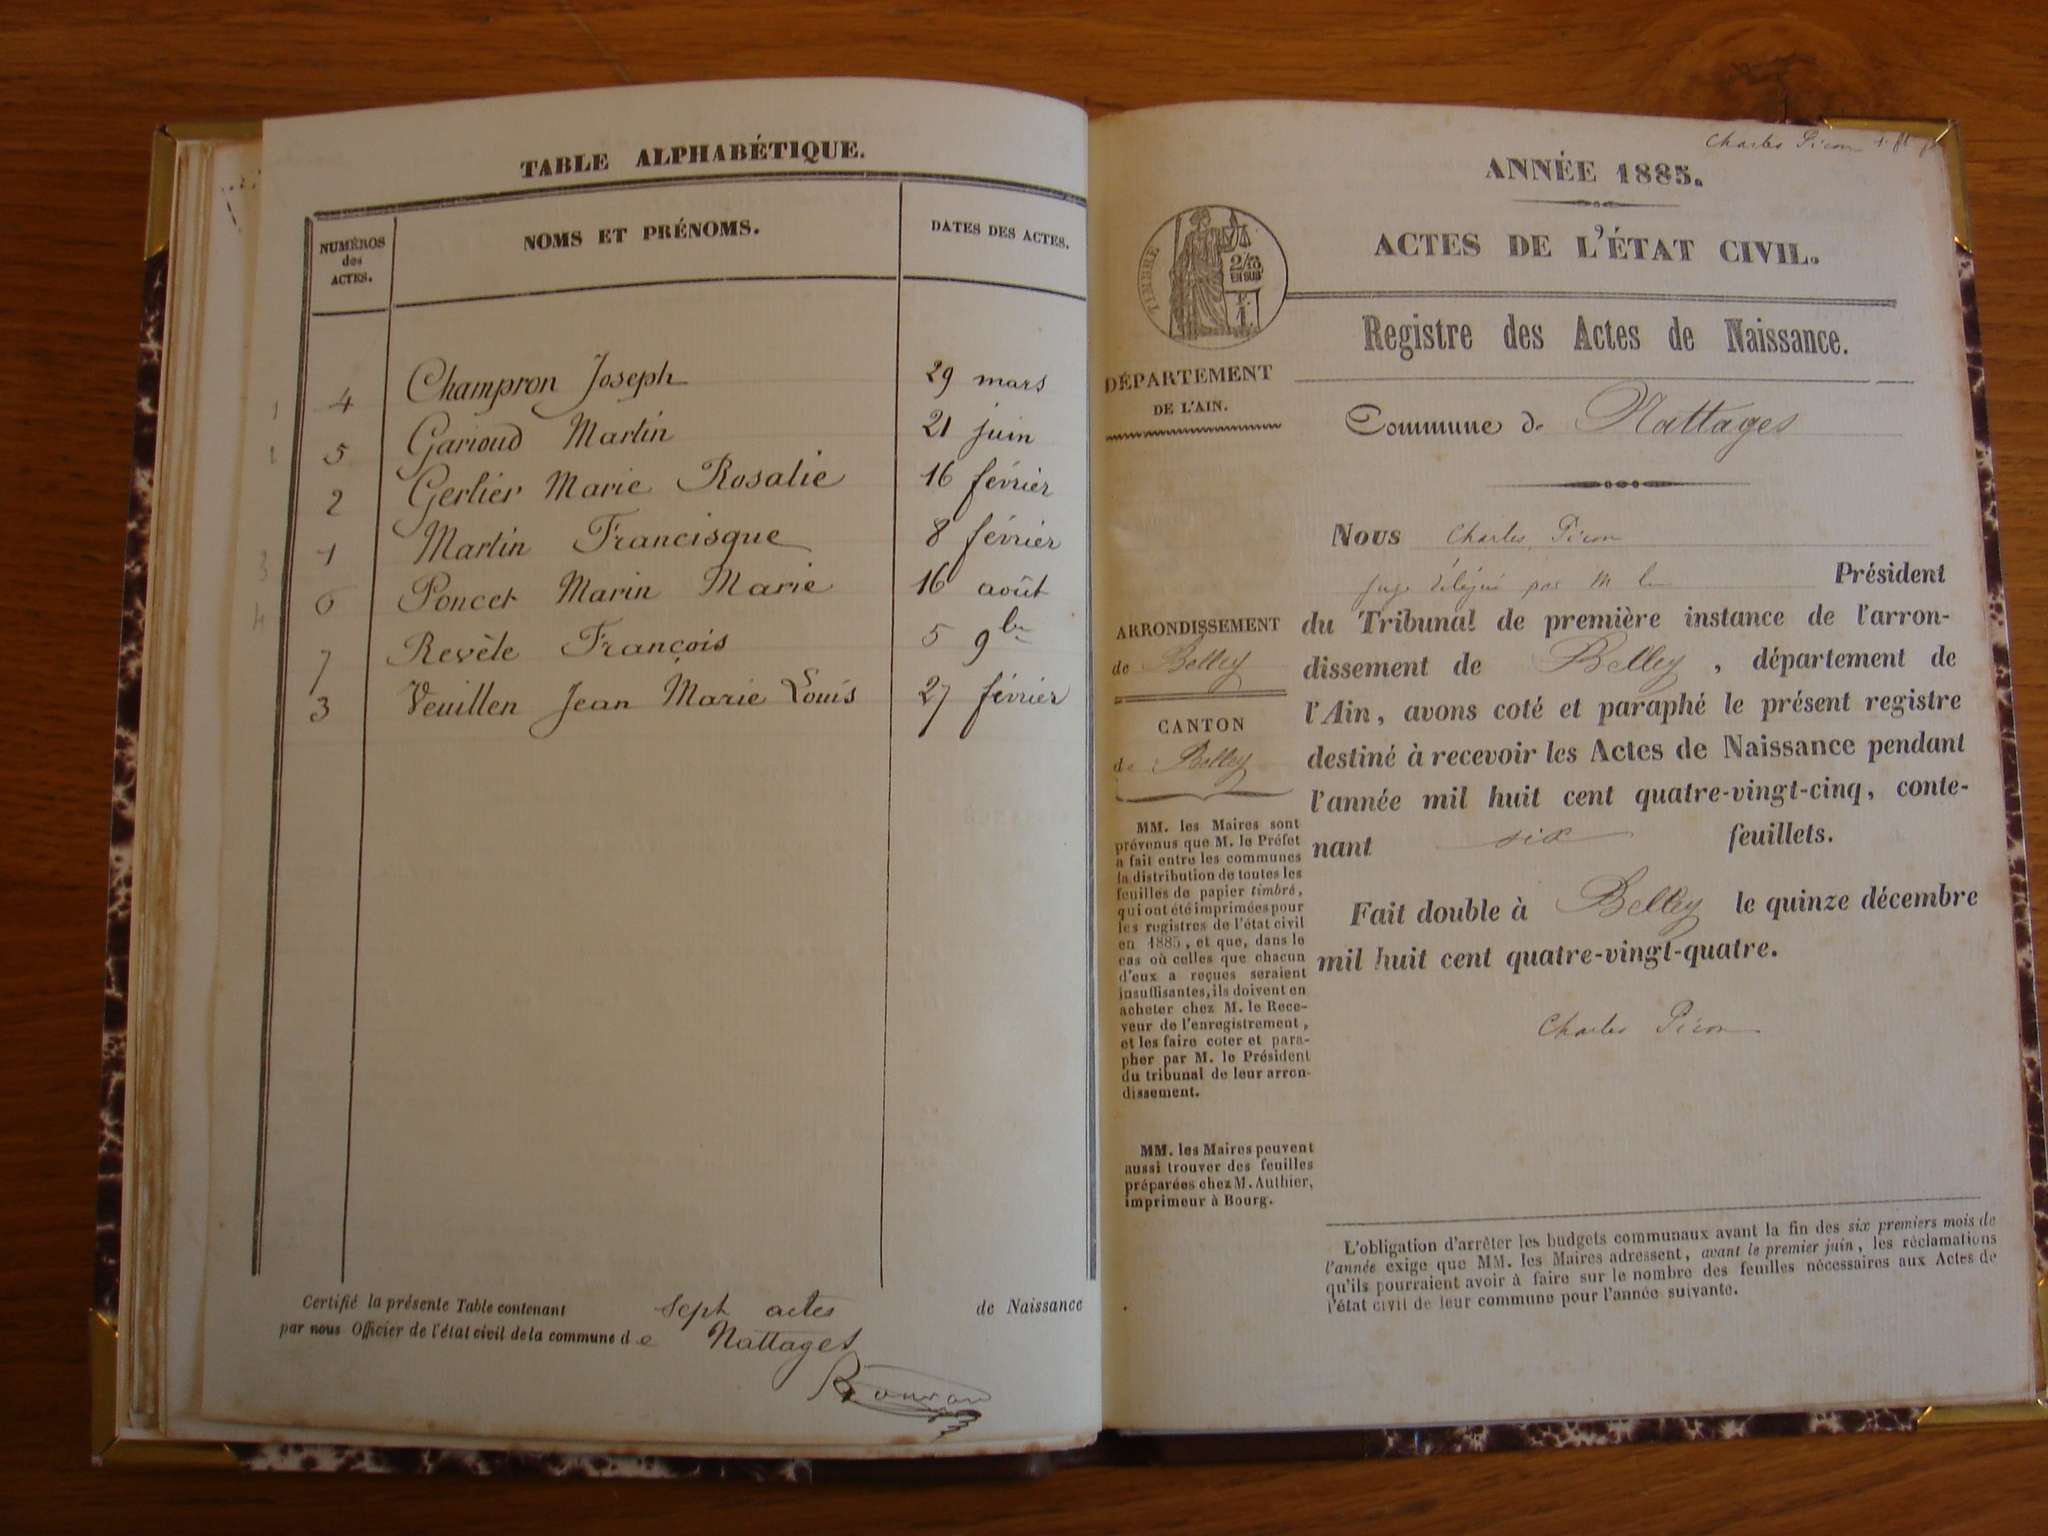 TABLE ALPHABÉTIQUE.
NUMÉROS
des
ACTES.
NOMS ET PRÉNOMS.
DATES DES ACTES.
4 Champron Joseph 29 mars
5 Garioud Martin 21 juin
2 Gerlier Marie Rosalie 16 février
1 Martin Francisque 8 février
6 Poncet Marin Marie 16 août
7 Revèle François 5 9bre
3 Veuillen Jean Marie Louis 27 février
Certifié la présente Table contenant sept actes de Naissance
par nous Officier de l'état civil de la commune de Nattages
Charles Picon
ANNÉE 1885.
ACTES DE L'ÉTAT CIVIL.
TIMBRE
2/10
EN SUS
Registre des Actes de Naissance.
DÉPARTEMENT
DE L'AIN.
Commune de Nattages
Nous Charles Picon
juge délégué par M le Président
du Tribunal de première instance de l'arron-
dissement de Belley, département de
l'Ain, avons coté et paraphé le présent registre
destiné à recevoir les Actes de Naissance pendant
l'année mil huit cent quatre-vingt-cinq, conte-
nant six feuillets.
Fait double à Belley le quinze décembre
mil huit cent quatre-vingt-quatre.
Charles Picon
ARRONDISSEMENT
de Belley
CANTON
de Belley
MM. les Maires sont
prévenus que M. le Préfet
a fait entre les communes
la distribution de toutes les
feuilles de papier timbré,
qui ont été imprimées pour
les registres de l'état civil
en 1885, et que, dans le
cas où celles que chacun
d'eux a reçues seraient
insuffisantes, ils doivent en
acheter chez M. le Rece-
veur de l'enregistrement,
et les faire coter et para-
pher par M. le Président
du tribunal de leur arron-
dissement.
MM. les Maires peuvent
aussi trouver des feuilles
préparées chez M. Authier,
imprimeur à Bourg.
L'obligation d'arrêter les budgets communaux avant la fin des six premiers mois de
l'année exige que MM. les Maires adressent, avant le premier juin, les réclamations
qu'ils pourraient avoir à faire sur le nombre des feuilles nécessaires aux Actes de
l'état civil de leur commune pour l'année suivante.